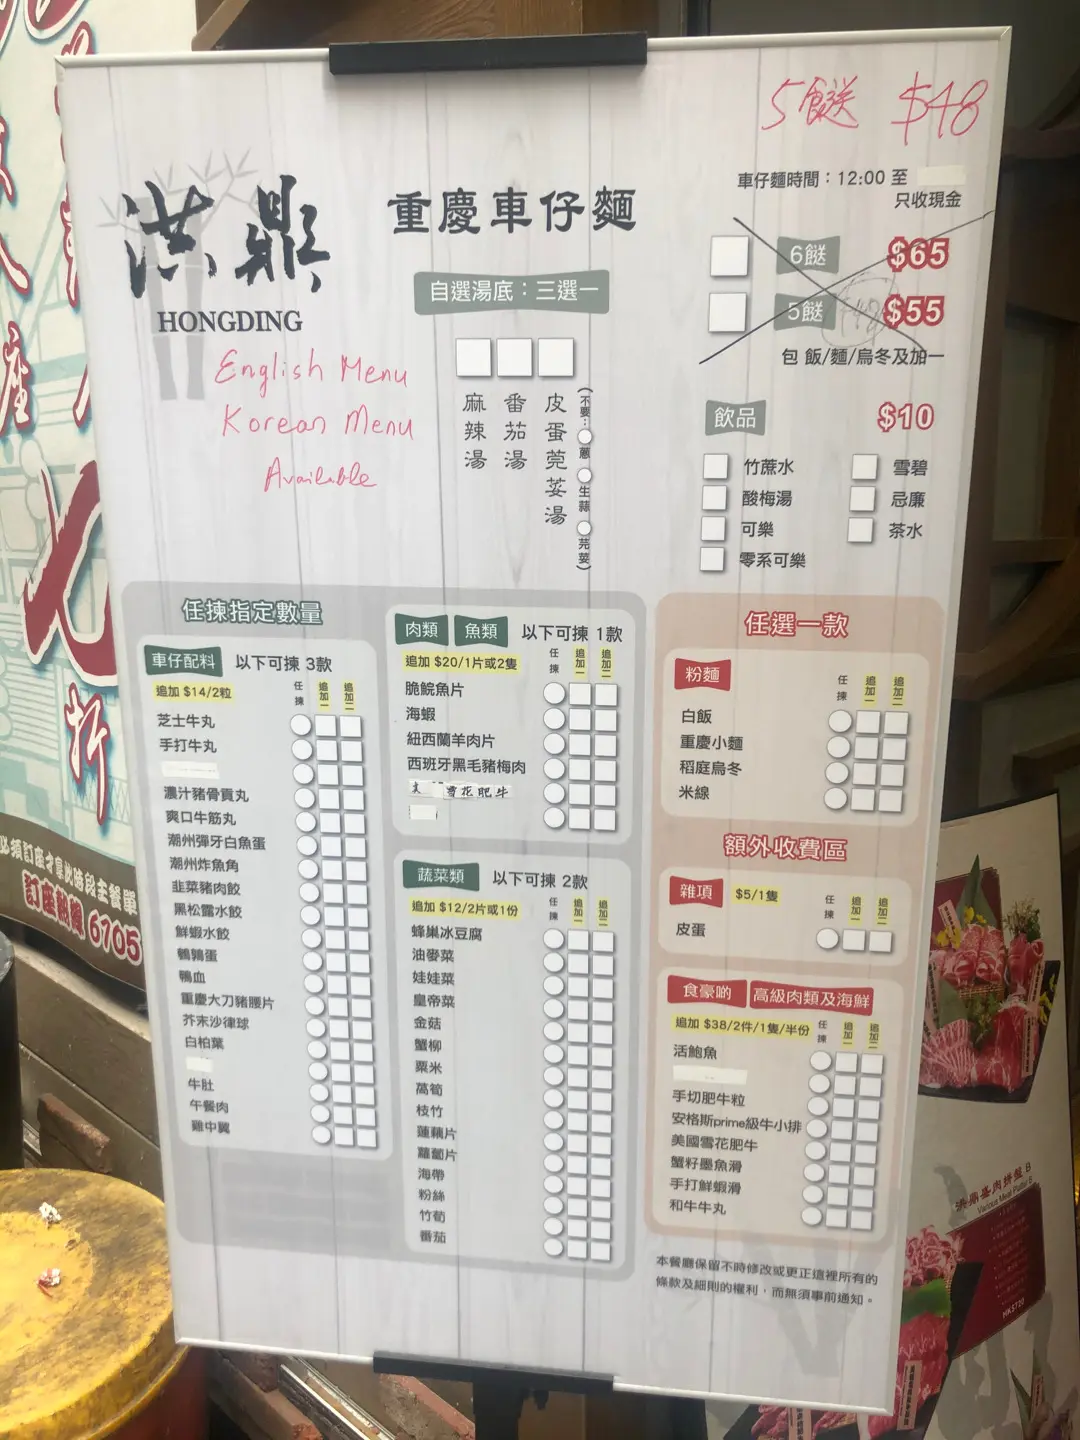 5餸送 $48
洪鼎
HONGDING
English Menu
Korean Menu
Available
重慶車仔麵
自選湯底：三選一
麻辣湯
番茄湯
皮蛋莞荽湯
(不要：蔥 生蒜 芫荽)
車仔麵時間：12:00 至
只收現金
6餸 $65
5餸 $55
包 飯/麵/烏冬及加一
飲品 $10
竹蔗水 雪碧
酸梅湯 忌廉
可樂 茶水
零系可樂
任揀指定數量
車仔配料 以下可揀 3款
追加 $14/2粒 任揀 追加一 追加二
芝士牛丸
手打牛丸
濃汁豬骨貢丸
爽口牛筋丸
潮州彈牙白魚蛋
潮州炸魚角
韭菜豬肉餃
黑松露水餃
鮮蝦水餃
鵪鶉蛋
鴨血
重慶大刀豬腰片
芥末沙律球
白柏葉
牛肚
午餐肉
雞中翼
肉類 魚類 以下可揀 1款
追加 $20/1片或2隻 任揀 追加一 追加二
脆鯇魚片
海蝦
紐西蘭羊肉片
西班牙黑毛豬梅肉
雪花肥牛
蔬菜類 以下可揀 2款
追加 $12/2片或1份 任揀 追加一 追加二
蜂巢冰豆腐
油麥菜
娃娃菜
皇帝菜
金菇
蟹柳
粟米
萵筍
枝竹
蓮藕片
蘿蔔片
海帶
粉絲
竹荀
番茄
任選一款
粉麵 任揀 追加一 追加二
白飯
重慶小麵
稻庭烏冬
米線
額外收費區
雜項 $5/1隻 任揀 追加一 追加二
皮蛋
食豪啲 高級肉類及海鮮
追加 $38/2件/1隻/半份 任揀 追加一 追加二
活鮑魚
手切肥牛粒
安格斯prime級牛小排
美國雪花肥牛
蟹籽墨魚滑
手打鮮蝦滑
和牛牛丸
本餐廳保留不時修改或更正這裡所有的
條款及細則的權利，而無須事前通知。
座
七
折
必須訂座才享此時段主餐單
訂座熱線 6105
洪鼎叁肉拼盤 B
Various Meat Platter B